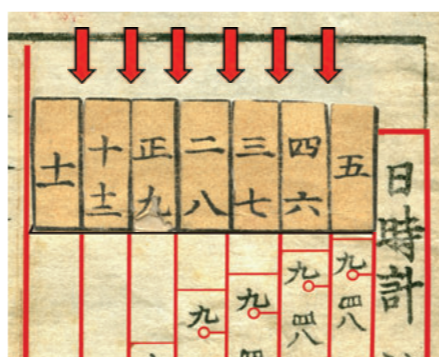 日時計
五
四六
三七
二八
正九
十十二
十一
九四八
九四八
九
九